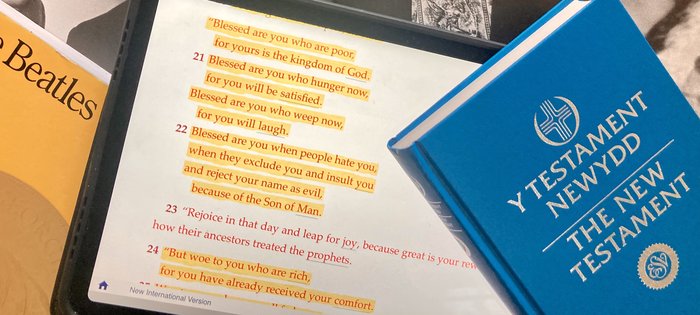 Beatles
"Blessed are you who are poor,
for yours is the kingdom of God.
21 Blessed are you who hunger now,
for you will be satisfied.
Blessed are you who weep now,
for you will laugh.
22 Blessed are you when people hate you,
when they exclude you and insult you
and reject your name as evil,
because of the Son of Man.
23 "Rejoice in that day and leap for joy, because great is your
how their ancestors treated the prophets.
24 "But woe to you who are rich,
for you have already received your comfort.
New International Version
Y TESTAMENT
NEWYDD
THE NEW
TESTAMENT